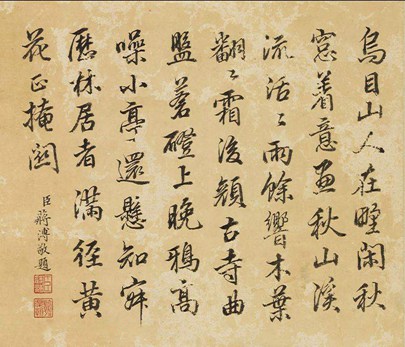 烏目山人在閑秋
窓着意畫秋山溪
流活〻雨餘響木葉
翻〻霜後顔古寺曲
盤蒼磴上晚鴉高
噪小亭還懸知寂
歷林居者滿徑黄
花正掩関
臣蔣溥敬題